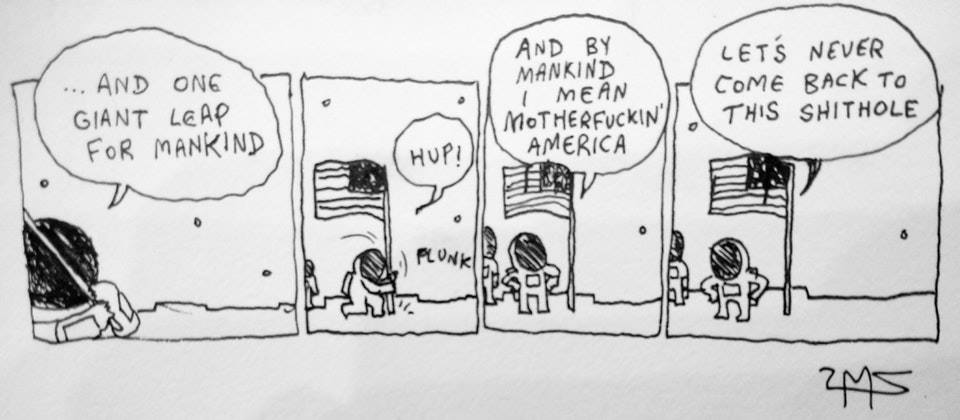 ... AND ONE
GIANT LEAP
FOR MANKIND
HUP!
PLUNK
AND BY
MANKIND
I MEAN
MOTHERFUCKIN'
AMERICA
LET'S NEVER
COME BACK TO
THIS SHITHOLE